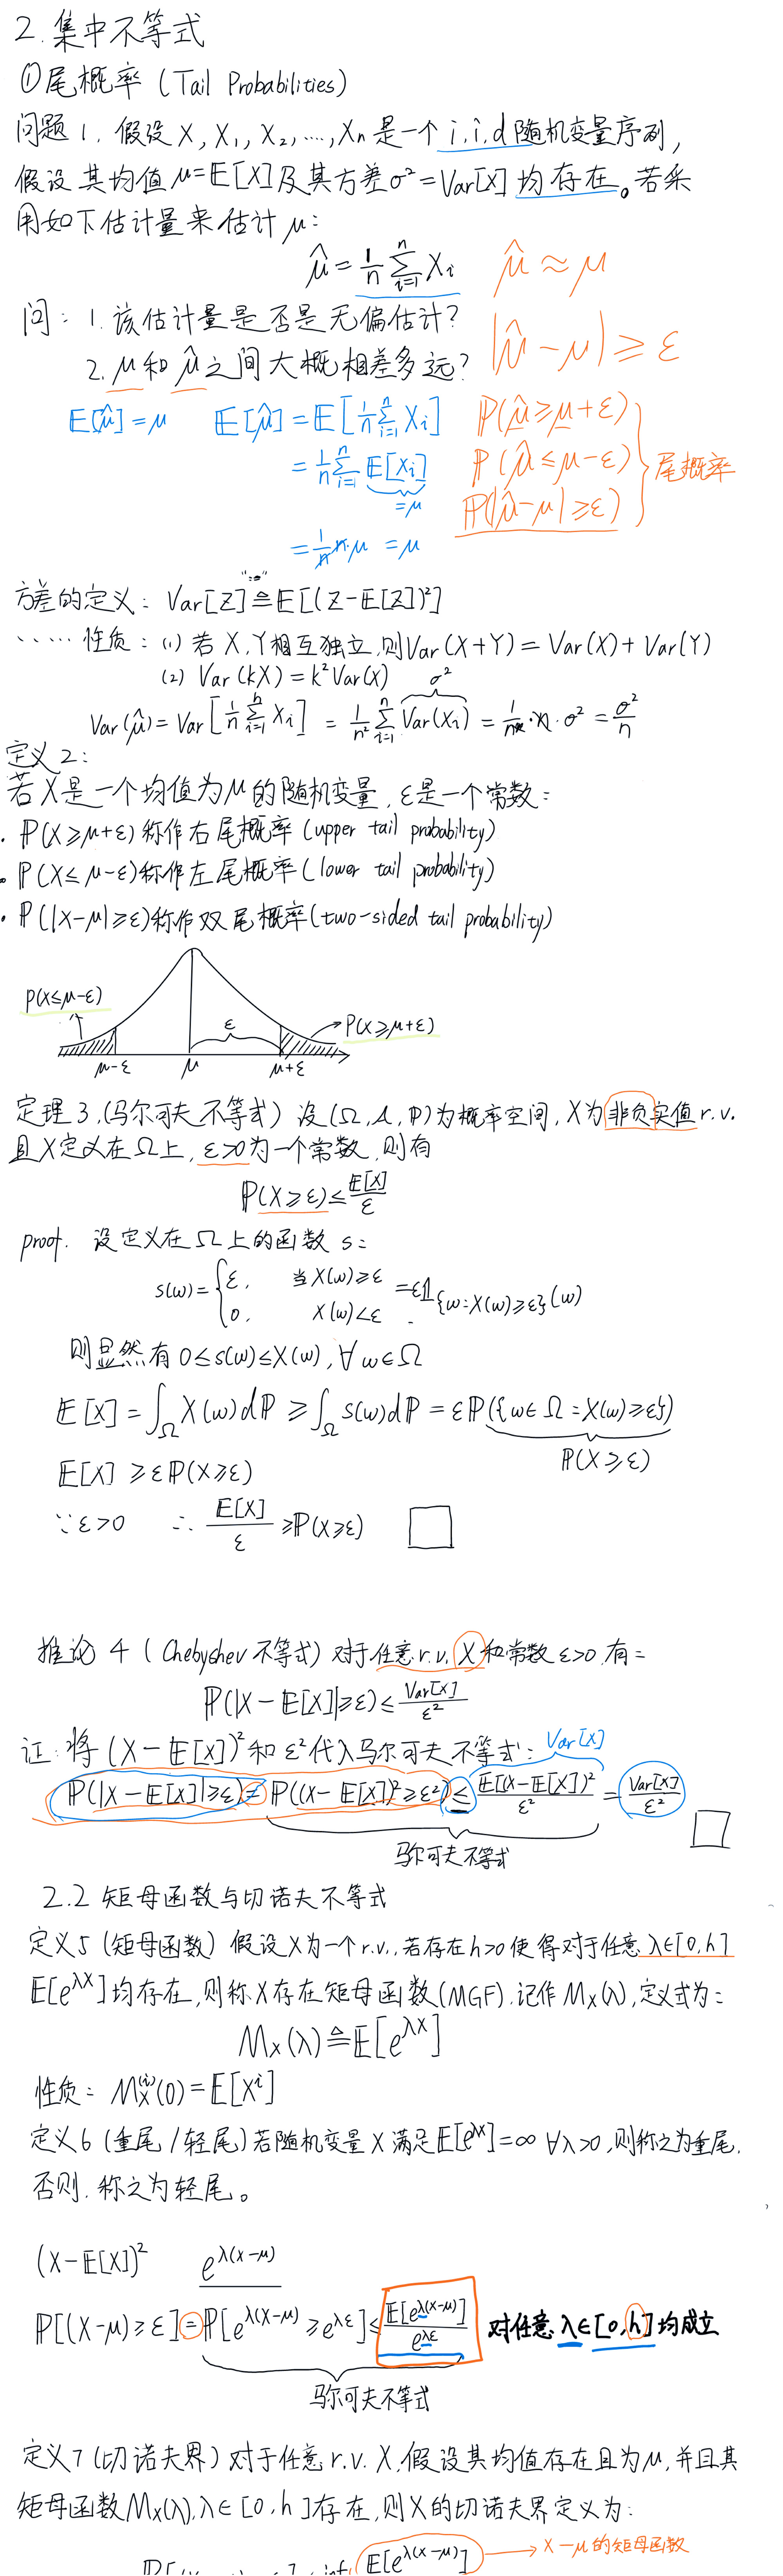 2. 集中不等式
①尾概率 (Tail Probabilities)
问题 1. 假设 X, X₁, X₂, ..., Xₙ 是一个 i.i.d 随机变量序列,
假设其均值 μ=𝔼[X]及其方差σ²=Var[X] 均存在。若采
用如下估计量来估计 μ:
μ̂ = 1/n ∑ᵢ₌₁ⁿ Xᵢ μ̂ ≈ μ
问: 1. 该估计量是否是无偏估计? |μ̂-μ| ≥ ε
2. μ 和 μ̂ 之间大概相差多远?
𝔼[μ̂]=μ 𝔼[μ̂] = 𝔼[1/n ∑ᵢ₌₁ⁿ Xᵢ] ℙ(μ̂≥μ+ε)
= 1/n ∑ᵢ₌₁ⁿ 𝔼[Xᵢ] ℙ(μ̂≤μ-ε) 尾概率
=μ ℙ(|μ̂-μ|≥ε)
= 1/n n·μ = μ
":="
方差的定义: Var[Z] ≜ 𝔼[(Z-𝔼[Z])²]
...... 性质: (1) 若 X, Y相互独立,则Var(X+Y) = Var(X)+Var(Y)
(2) Var(kX) = k²Var(X) σ²
Var(μ̂) = Var[1/n ∑ᵢ₌₁ⁿ Xᵢ] = 1/n² ∑ᵢ₌₁ⁿ Var(Xᵢ) = 1/n² · n · σ² = σ²/n
定义 2:
若 X是一个均值为μ的随机变量, ε是一个常数:
· ℙ(X≥μ+ε) 称作右尾概率 (upper tail probability)
· ℙ(X≤μ-ε)称作左尾概率 (lower tail probability)
· ℙ(|X-μ|≥ε)称作双尾概率(two-sided tail probability)
P(X≤μ-ε) ε P(X≥μ+ε)
μ-ε μ μ+ε
定理 3. (马尔可夫不等式) 设 (Ω, 𝒜, ℙ)为概率空间, X为非负实值 r.v.
且X定义在Ω上, ε>0为一个常数,则有
ℙ(X≥ε) ≤ 𝔼[X]/ε
proof. 设定义在 Ω 上的函数 s:
s(ω)={ε, 当X(ω)≥ε =ε𝟙{ω:X(ω)≥ε}(ω)
0, X(ω)<ε
则显然有 0≤s(ω)≤X(ω), ∀ω∈Ω
𝔼[X] = ∫_Ω X(ω)dℙ ≥ ∫_Ω s(ω)dℙ = εℙ({ω∈Ω:X(ω)≥ε})
𝔼[X] ≥ εℙ(X≥ε) ℙ(X≥ε)
∵ε>0 ∴ 𝔼[X]/ε ≥ℙ(X≥ε) □
推论 4 (Chebyshev 不等式) 对于任意 r.v. X 和常数 ε>0, 有:
ℙ(|X-𝔼[X]|≥ε) ≤ Var[X]/ε²
证: 将 (X-𝔼[X])²和 ε²代入马尔可夫不等式: Var[X]
ℙ(|X-𝔼[X]|≥ε) = ℙ((X-𝔼[X])²≥ε²) ≤ 𝔼[(X-𝔼[X])²]/ε² = Var[X]/ε²
马尔可夫不等式 □
2.2 矩母函数与切诺夫不等式
定义5 (矩母函数) 假设X为一个r.v., 若存在h>0使得对于任意 λ∈[0,h]
𝔼[e^{λX}]均存在,则称X存在矩母函数(MGF), 记作 Mₓ(λ), 定义式为:
Mₓ(λ) ≜ 𝔼[e^{λX}]
性质: Mₓ⁽ⁱ⁾(0) = 𝔼[Xⁱ]
定义 6 (重尾/轻尾) 若随机变量 X 满足𝔼[e^{λX}]=∞ ∀λ>0,则称之为重尾,
否则,称之为轻尾。
(X-𝔼[X])² e^{λ(X-μ)}
ℙ[(X-μ)≥ε] = ℙ[e^{λ(X-μ)} ≥ e^{λε}] ≤ 𝔼[e^{λ(X-μ)}]/e^{λε} 对任意 λ∈[0,h]均成立
马尔可夫不等式
定义7 (切诺夫界) 对于任意 r.v. X, 假设其均值存在且为μ, 并且其
矩母函数Mₓ(λ), λ∈[0,h]存在,则X的切诺夫界定义为:
𝔼[e^{λ(X-μ)}] → X-μ 的矩母函数